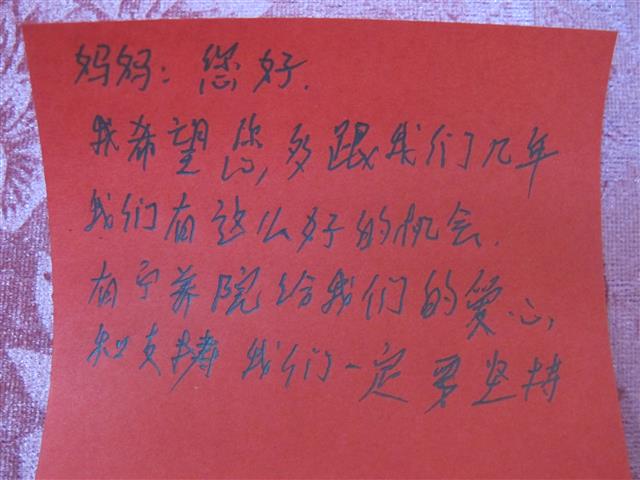 妈妈：您好.
我希望您,多跟我们几年
我们有这么好的机会.
有宁养院给我们的爱心,
和支持 我们一定要坚持